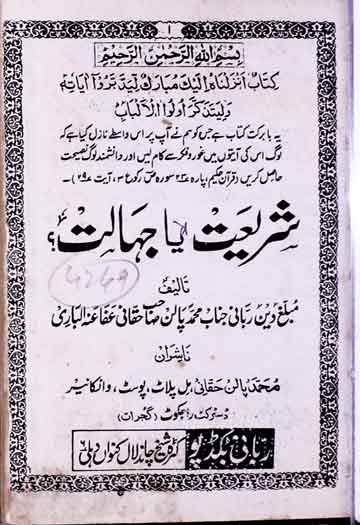 ۱
بسم اللہ الرحمن الرحیم
کتاب انزلناه الیک مبارک لیدبروا آیاته
ولیتذکر اولوا الالباب
یہ بابرکت کتاب ہے جس کو ہم نے آپ پر اس واسطے نازل کیا ہے کہ
لوگ اس کی آیتوں میں غور و فکر سے کام لیں اور دانشمند لوگ نصیحت
حاصل کریں (قرآن حکیم، پارہ ۲۳، سورہ ص رکوع ۳، آیت ۲۹)۔
شریعت یا جہالت؟
تالیف
مبلغ دین ربانی جناب محمد پالن صاحب حقانی عفا عنہ الباری
ناشران
محمد پالن حقانی، مل پلاٹ، پوسٹ، وانکانیر
ڈسٹرکٹ راجکوٹ (گجرات)
ربانی بکڈپو کٹرہ شیخ چاند لال کنواں دہلی ۶